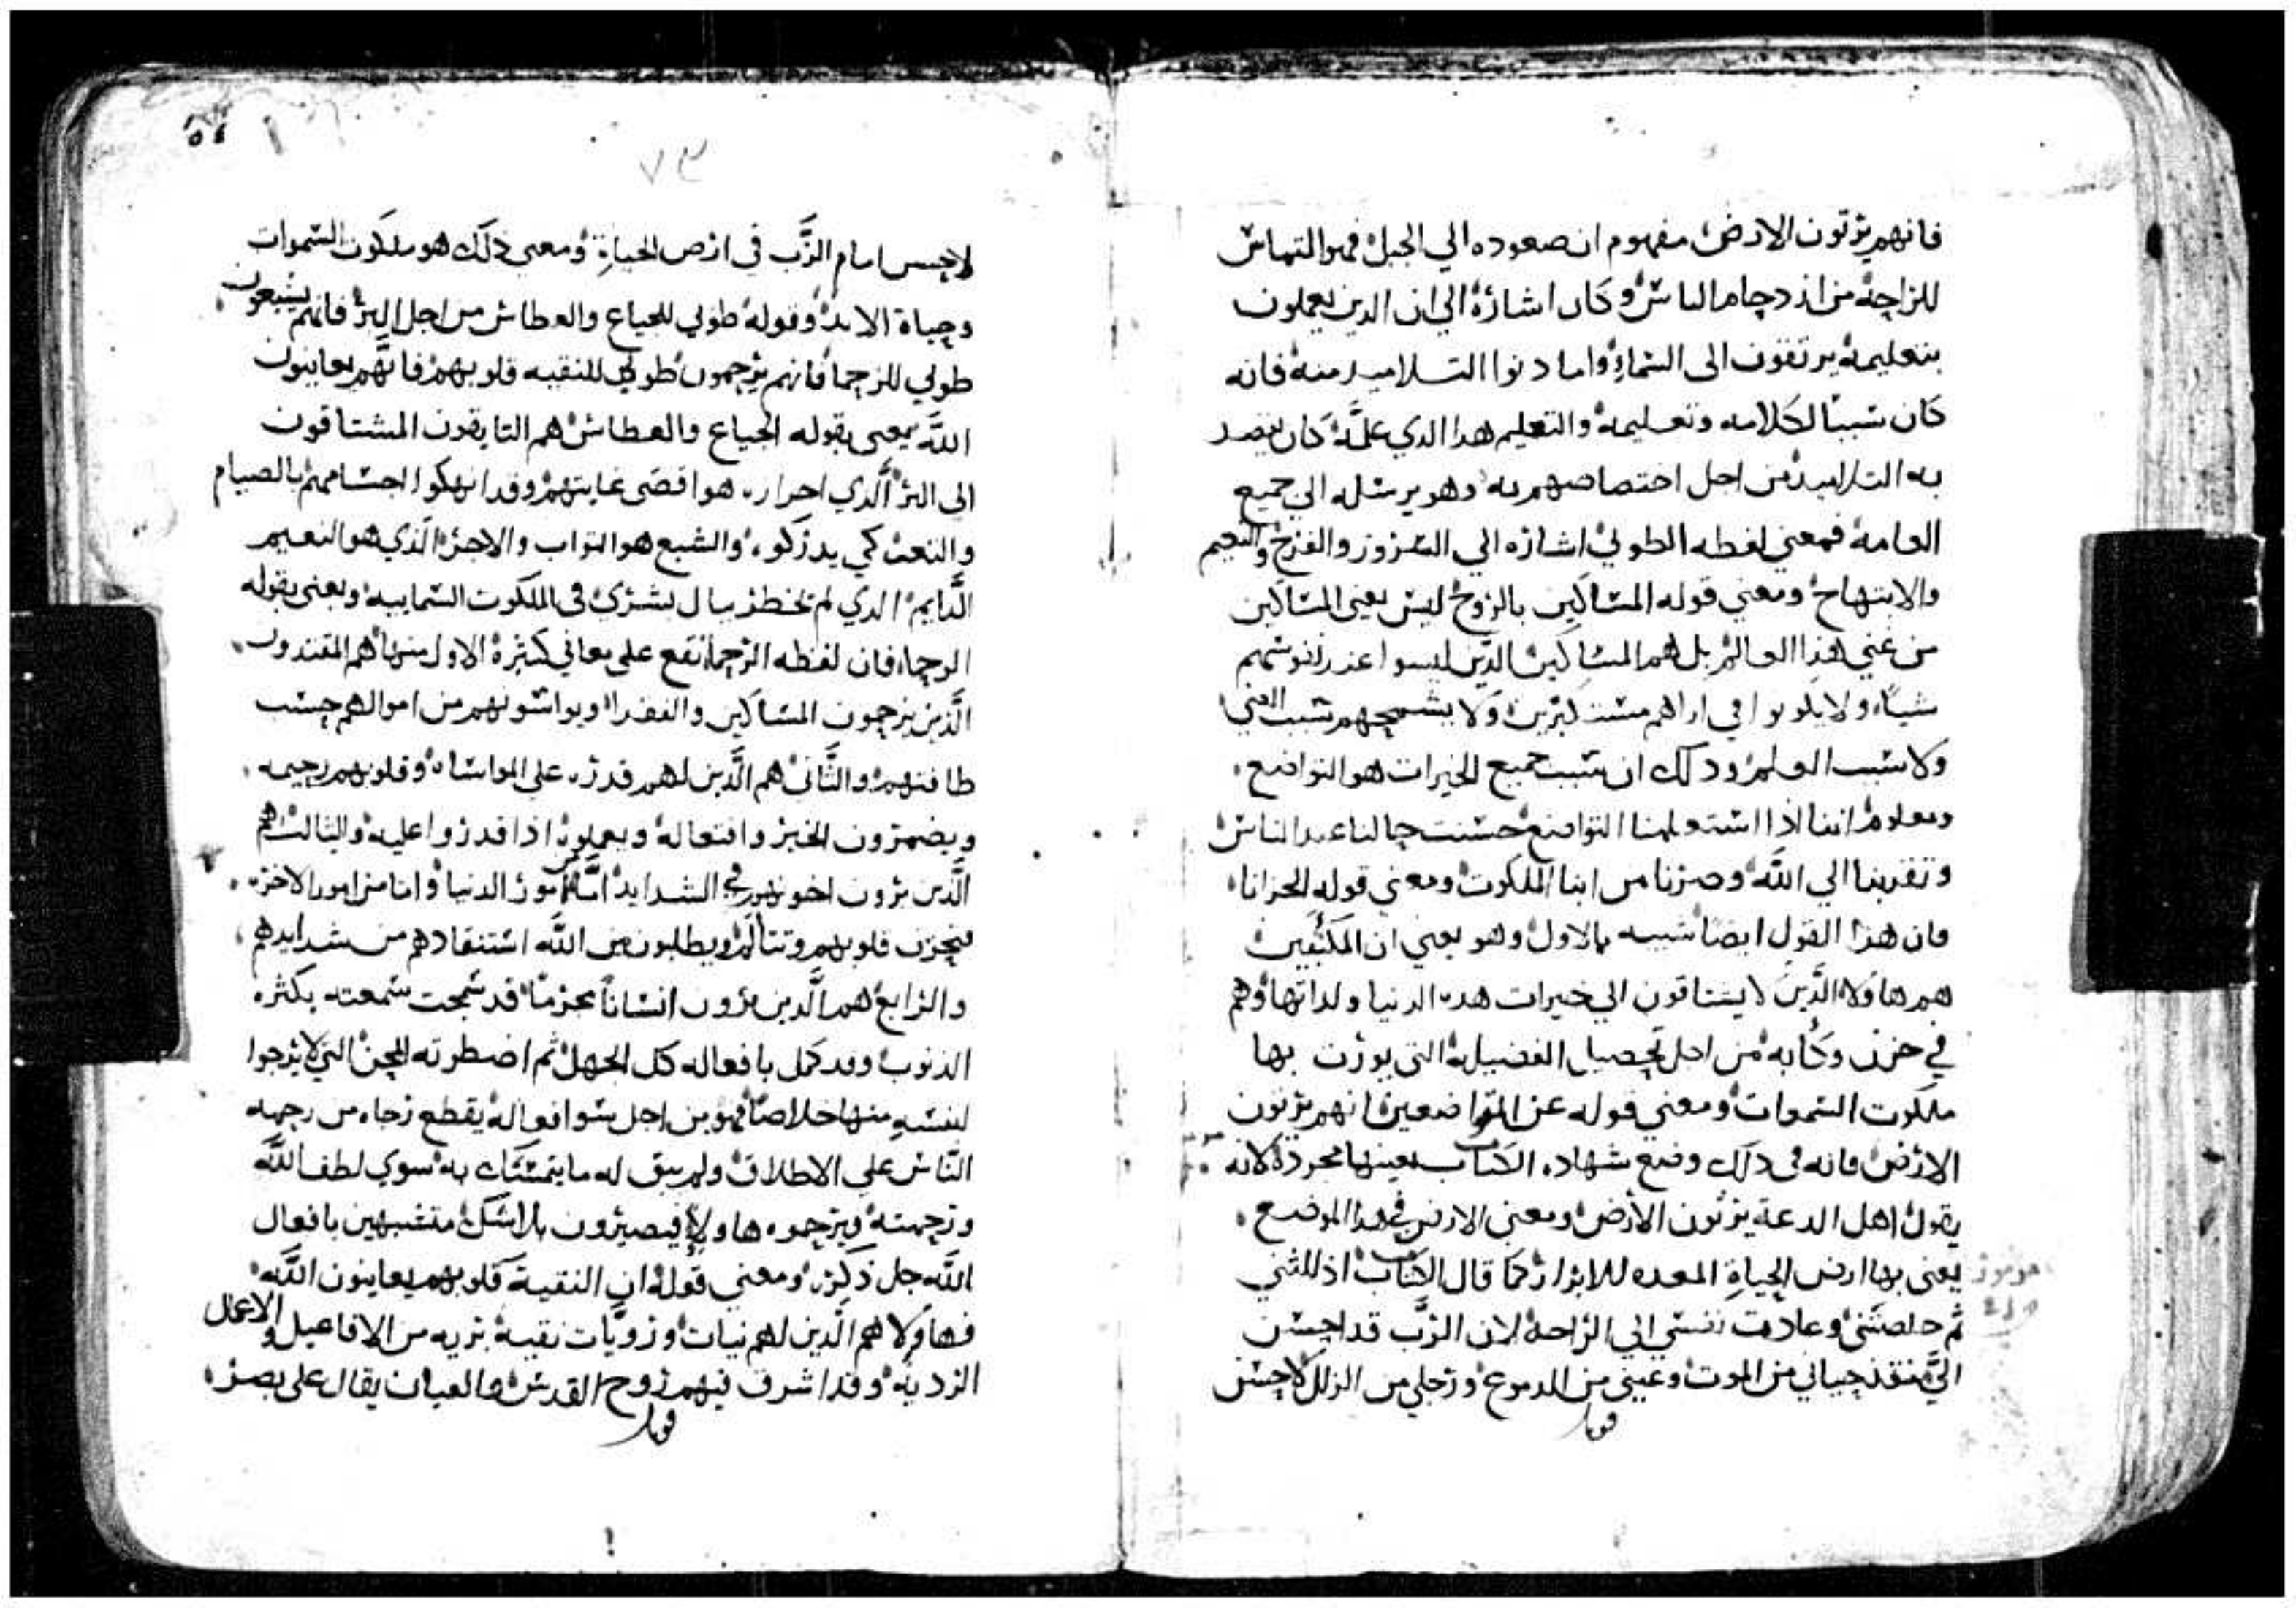 فانهم يرثون الارض مفهوم ان صعوده الي الجبل فهو التماس
للراحة من ازدحام الناس وكان اشارة الي ان الدين يعملون
بتعليمه يرتقون الى السماء واما دنوا التلاميد منه فانه
كان سببا لكلامه وتعليمه والتعليم هدا الدي علمه كان يقصد
به التلاميد من اجل اختصاصهم به وهو يرسله الي جميع
العامه فمعني لفظه الطوبي اشاره الي السرور والفرح والنعيم
والابتهاج ومعني قوله المساكين بالروح ليس يعني المساكين
من غني هذا العالم بل هم المساكين الدين ليسوا عند نفوسهم
شيا ولا يكونوا في اراهم مستكبرين ولا يشمخهم سبب الغني
ولا سبب العلم ودلك ان سبب جميع الخيرات هو التواضع
ومعلوم اننا اذا استعملنا التواضع حسنت حالنا عند الناس
وتقربنا الي الله وصرنا من ابنا الملكوت ومعني قوله الحزانا
فان هذا القول ايضا شبيه بالاول وهو يعني ان المكتئبين
هم هاولا الذين لا يشتاقون الي خيرات هده الدنيا ولداتها وهم
في حزن وكآبه من اجل تحصيل الفضيلة التي يورث بها
ملكوت السموات ومعني قوله عن المتواضعين انهم يرثون
الارض فانه في دلك وضع شهاده الكتاب بعينها مجردة لانه
يقول اهل الدعة يرثون الأرض ومعني الارض في هدا الموضع
يعني بها ارض الحياة المعده للابرار كما قال الكتاب اذللتني
ثم خلصتني وعادت نفسي الي الراحة لان الرب قد احسن
اليّ منقذ حياتي من الموت وعيني من الدموع ورجلي من الزلل لاحسن
قوبل
٥٤
٧٣
لاحسن امام الرّب في ارض الحياة ومعني ذلك هو ملكوت السموات
وحياة الابد وقوله طوبي للجياع والعطاش من اجل البر فانهم يشبعون
طوبي للرحما فانهم يرحمون طوبي للنقيه قلوبهم فانهم يعاينون
الله يعني بقوله الجياع والعطاش هم التايقون المشتاقون
الى البر الّدي احراره هو اقصى غايتهم وقد انهكوا اجسامهم بالصيام
والتعب كي يدركوه والشبع هو التواب والاجر الّذي هو النعيم
الدّايم الدي لم يخطر ببال بشري في الملكوت السماييه ويعني بقوله
الرحماء فان لفظه الرحما تقع على معاني كثيرة الاول منها هم المقتدون
الّذين يرحمون المساكين والفقرا ويواسونهم من اموالهم حسب
طاقتهم والثّاني هم الّدين لهم قدره على المواساه وقلوبهم رحيمه
ويضمرون الخير وافتعاله ويعملوه اذا قدروا عليه والثالث هم
الّدين يرون اخوتهم في الشدايد امّا من امور الدنيا واما من امور الاخره
فتحزن قلوبهم وتتألم ويطلبون من الله استنقادهم من شدايدهم
والرابع هم الّدين يرون انسانا مجرما قد سمجت سمعته بكثره
الدنوب وقد كمل بافعاله كل الجهل ثم اضطرته المحن التي لا يرجوا
لنفسه منها خلاصا فهو من اجل سوا افعاله يقطع رجاه من رحمه
النّاس على الاطلاق ولم يبق له ما يتمسّك به سوي لطف الله
ورحمته فيرحموه هاولا فيصيرون بلا شك متشبهين بافعال
الله جل ذكره ومعني قوله ان النقية قلوبهم يعاينون الله
فهاولا هم الّدين لهم نيات ورويّات نقية بريه من الافاعيل والاعمال
الرديه وقد اشرق فيهم روح القدس والعيان يقال على بصر
قوبل